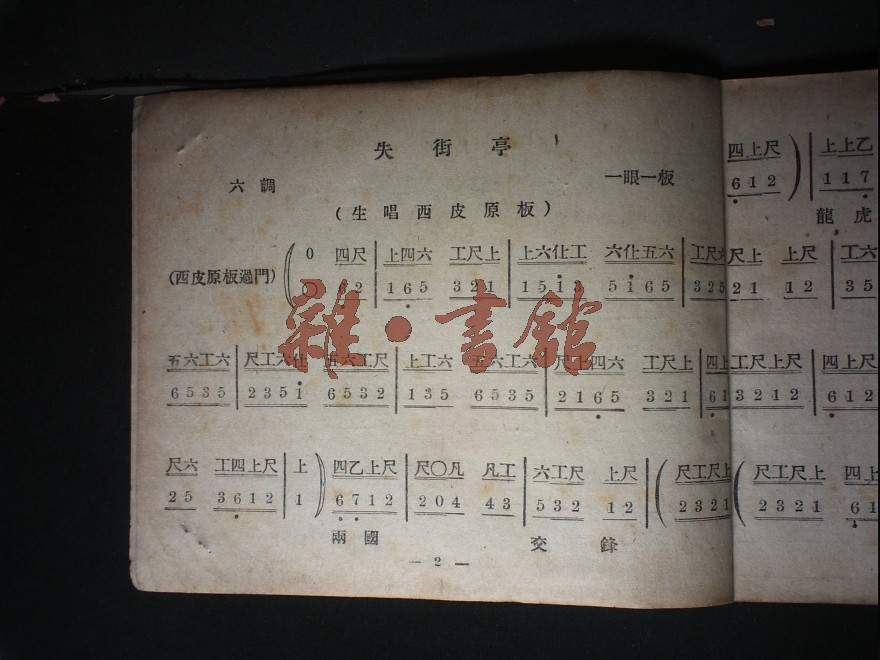 失街亭
六調 一眼一板
(生唱西皮原板)
0 四尺 | 上四六 工尺上 | 上六仩工 六仩五六 | 工尺六
(西皮原板過門) ( 0 62 | 165 321 | 1513 5165 | 325
五六工六 | 尺工六仩 五六工尺 | 上工六 五六工六 | 尺上四六 工尺上 | 四上
6535 | 2351 6532 | 135 6535 | 2165 321 | 61
尺六 工四上尺 | 上 ) 四乙上尺 | 尺〇凡 凡工 | 六工尺 上尺 | ( 尺工尺上
25 3612 | 1 6712 | 204 43 | 532 12 | 2321
兩國 交鋒
— 2 —
四上尺 ) | 上上乙
612 | 117
龍虎
尺上 上尺 | 工六
21 12 | 35
工尺上尺 | 四上尺
3212 | 612
( 尺工尺上 四上
2321 61
雜·書館